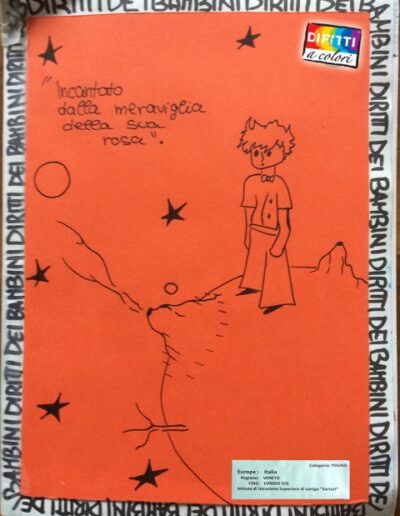 DIRITTI DEI BAMBINI DIRITTI DEI BAMBINI
DIRITTI
a colori
"Incantato
dalla meraviglia
della sua
rosa".
DIRITTI DEI BAMBINI DIRITTI DEI BAMBINI DIRITTI DEI BAMBINI
BAMBINI DIRITTI DEI BAMBINI DIRITTI DEI BAMBINI
Categoria: YOUNG
Europa: Italia
Regione: VENETO
Città: LONIGO (VI)
Istituto di Istruzione Superiore di Lonigo "Sartori"